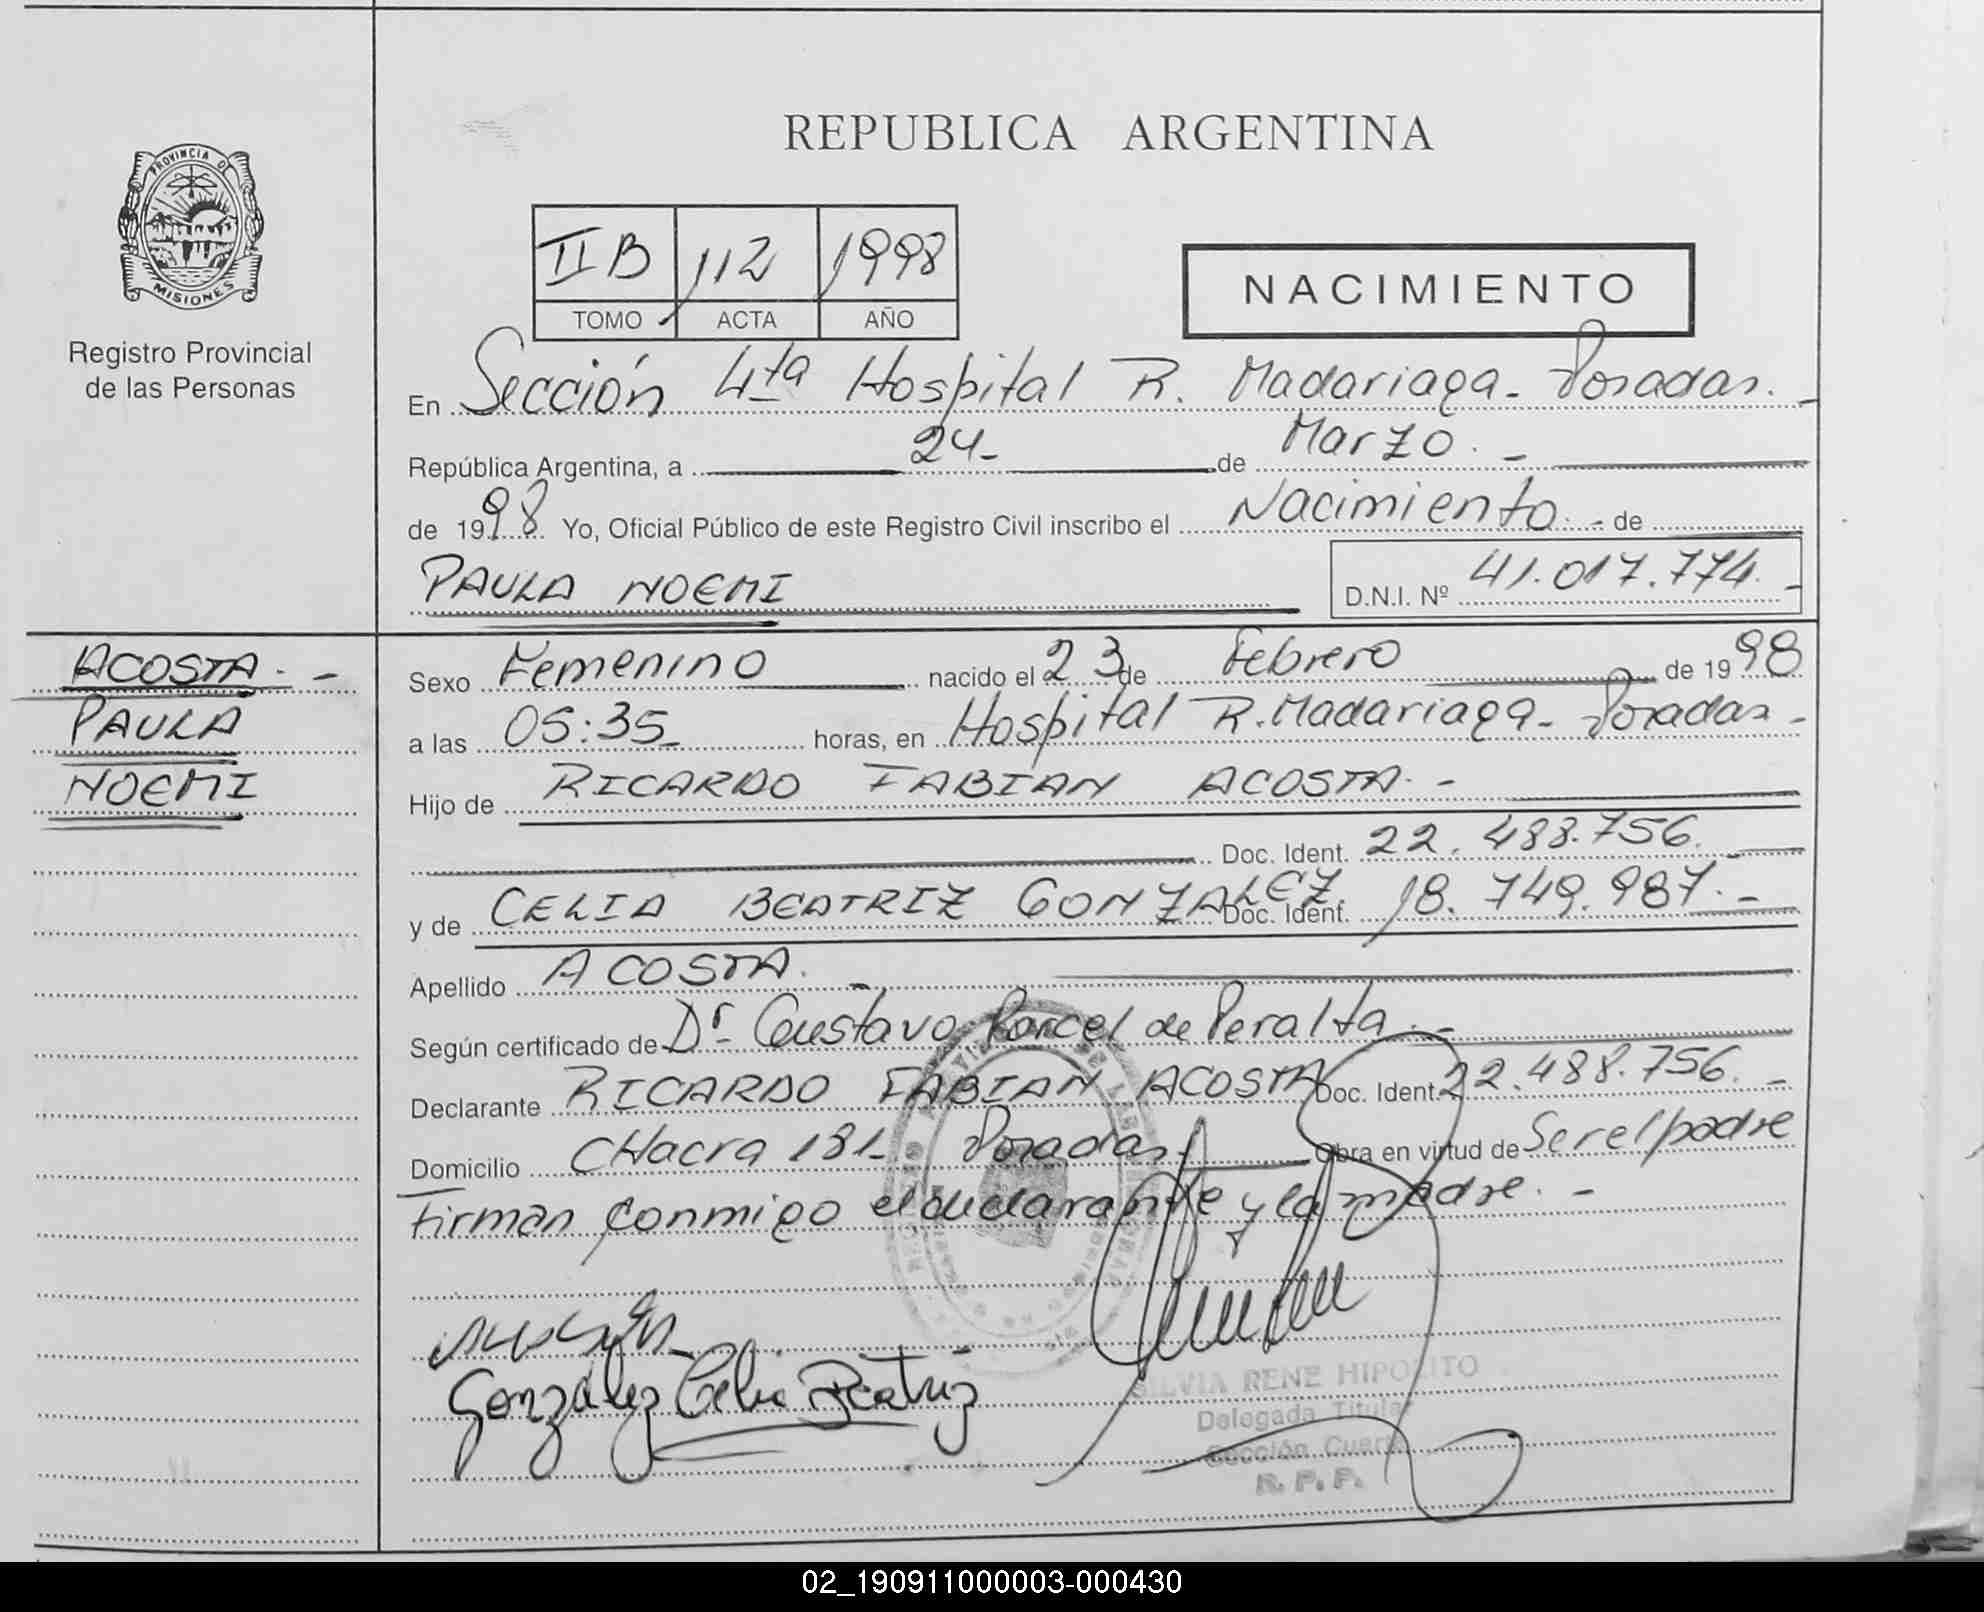 REPUBLICA ARGENTINA
PROVINCIA DE
MISIONES
Registro Provincial
de las Personas
II B 112 1998
TOMO ACTA AÑO
NACIMIENTO
En Sección 4ta Hospital R. Madariaga - Posadas. -
República Argentina, a 24 - de Marzo. -
de 1998 Yo, Oficial Público de este Registro Civil inscribo el Nacimiento. - de
PAULA NOEMI D.N.I. Nº 41.017.774. -
ACOSTA. -
PAULA
NOEMI
Sexo Femenino nacido el 23 de Febrero de 1998
a las 05:35 - horas, en Hospital R. Madariaga - Posadas -
Hijo de RICARDO FABIAN ACOSTA. -
Doc. Ident. 22.488.756. -
y de CELIA BEATRIZ GONZALEZ Doc. Ident. 18.749.987. -
Apellido ACOSTA. -
Según certificado de Dr. Gustavo Porcel de Peralta. -
Declarante RICARDO FABIAN ACOSTA Doc. Ident. 22.488.756. -
Domicilio CHacra 181 - Posadas - Obra en virtud de Ser el padre
Firman conmigo el declarante y la madre. -
Gonzalez Celia Beatriz
SILVIA RENE HIPOLITO
Delegada Titular
Sección Cuarta
R. P. P.
02_190911000003-000430